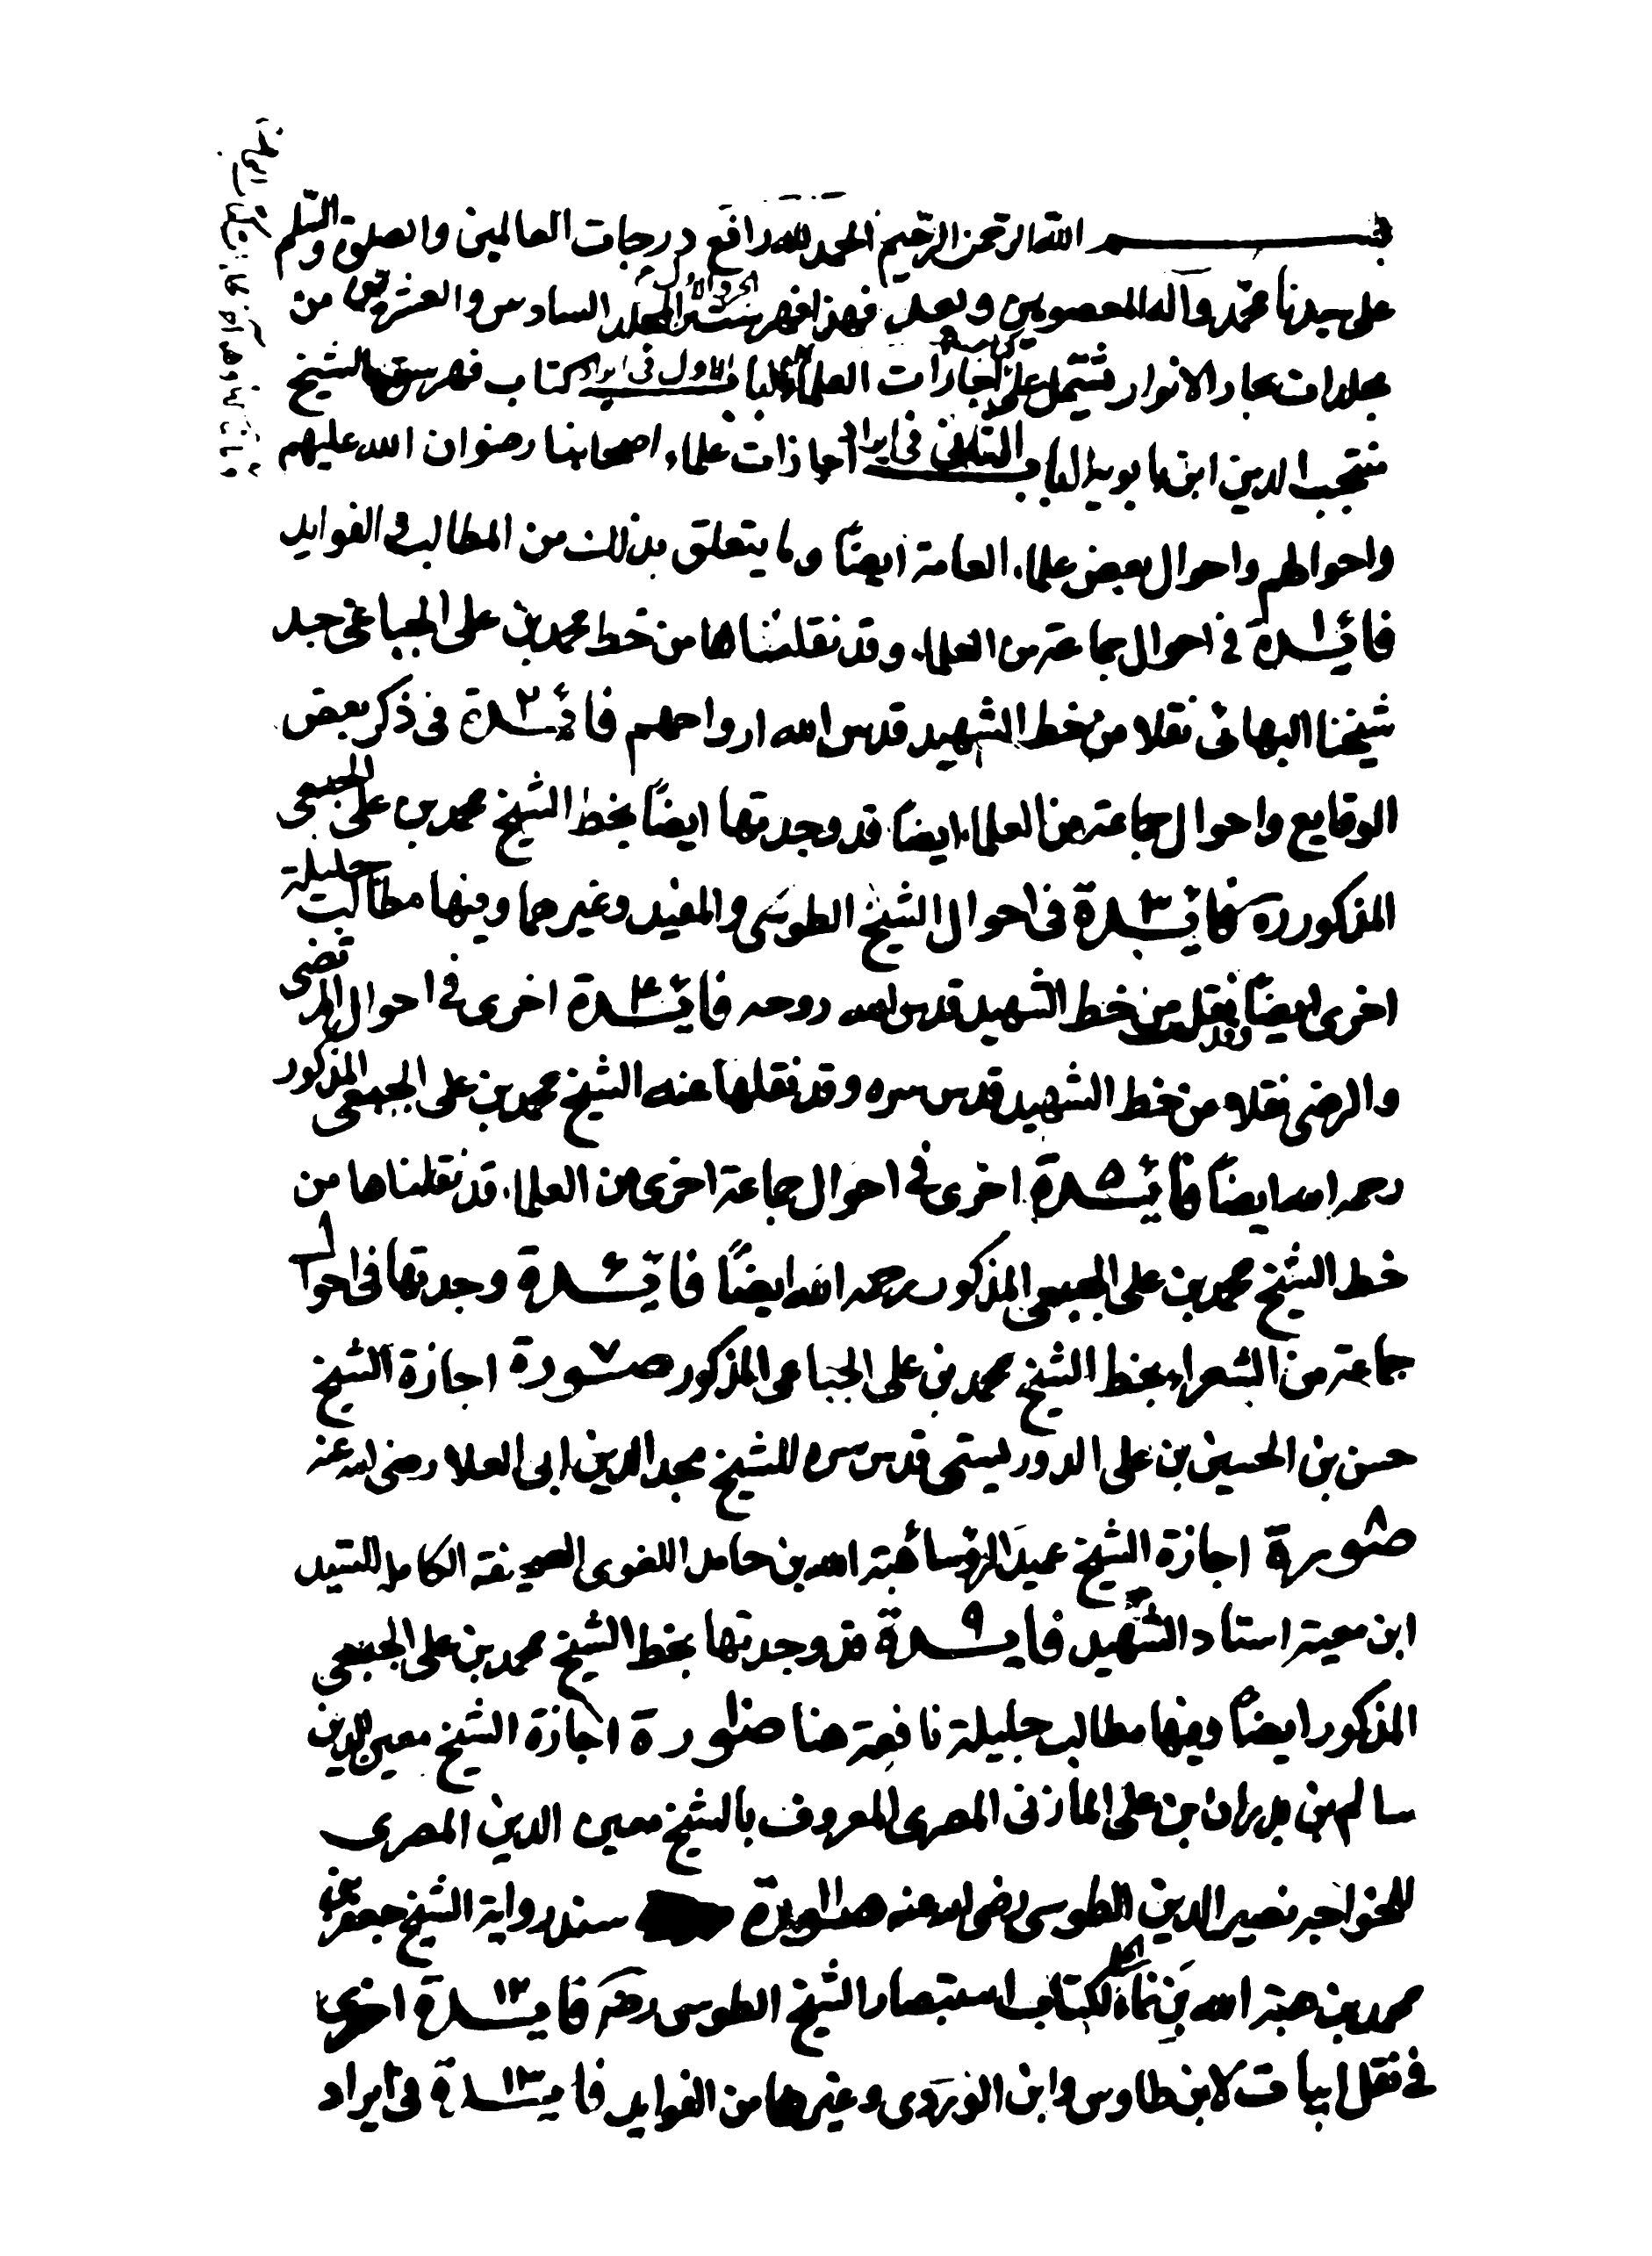 بسم الله الرحمن الرحيم الحمد لله رافع درجات العالمين والصلوة والسلم
على سيدنا محمد وآله المعصومين وبعد فهذا فهرست المجلد السادس والعشرين من
مجلدات بحار الانوار فيشتمل على اجازات العلماء الباب الاول في ايراد كتاب فهرست الشيخ
منتجب الدين ابن بابويه الباب الثاني في ايراد اجازات علماء اصحابنا رضوان الله عليهم
واحوالهم واحوال بعض علماء العامة ايضاً وما يتعلق بذلك من المطالب والفوايد
فائدة ١ في احوال جماعة من العلماء وقد نقلناها من خط محمد بن على الجباعى جد
شيخنا البهائى نقلا من خط الشهيد قدس الله ارواحهم فائدة ٢ في ذكر بعض
الوقايع واحوال جماعة من العلماء ايضاً قد وجدتها ايضاً بخط الشيخ محمد بن على الجبعى
المذكور ره فائدة ٣ في احوال الشيخ الطوسى والمفيد وغيرهما وفيها مطالب جليلة
اخرى ايضاً نقل من خط الشهيد قدس الله روحه فائدة ٤ اخرى في احوال المرتضى
والرضى نقلا من خط الشهيد قدس سره وقد نقلها عنه الشيخ محمد بن على الجبعى المذكور
رحمه الله ايضاً فائدة ٥ اخرى في احوال جماعة اخرى من العلماء قد نقلناها من
خط الشيخ محمد بن على الجبعى المذكور رحمه الله ايضاً فائدة ٦ وجدتها في احوال
جماعة من الشعراء بخط الشيخ محمد بن على الجباعى المذكور صورة ٧ اجازة الشيخ
حسن بن الحسين بن على الدوريستى قدس سره للشيخ مجد الدين ابى العلا رضى الله عنه
صورة ٨ اجازة الشيخ عميد الرؤسا هبة الله بن حامد اللغوى الصحيفة الكاملة للسيد
ابن معية استاد الشهيد فايدة ٩ قد وجدتها بخط الشيخ محمد بن على الجبعى
المذكور ايضاً وفيها مطالب جليلة نافعة هنا صورة ١٠ اجازة الشيخ معين الدين
سالم بن بدران ابن على المازنى المصرى المعروف بالشيخ معين الدين المصرى
للخواجه نصير الدين الطوسى رضى الله عنه صورة ١١ سند رواية الشيخ جعفر بن
محمد بن هبة الله بن نما لكتاب استبصار الشيخ الطوسى رحمه فايدة ١٢ اخرى
في نقل ابيات لابن طاوس وابن الوردى وغيرها من الفوايد فايدة ١٣ في ايراد